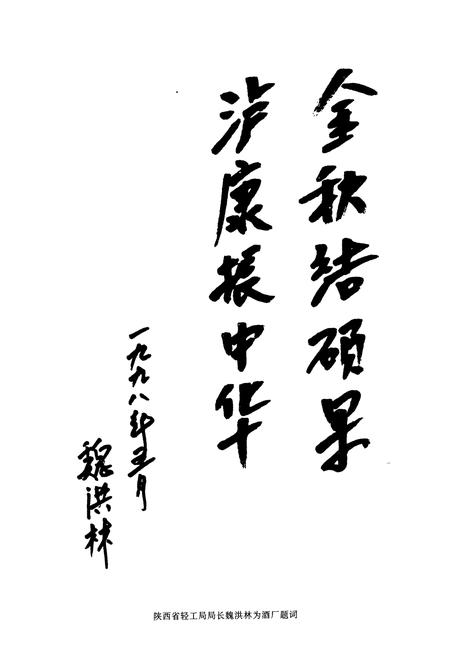 金秋结硕果
泸康振中华
一九九八年五月
魏洪林
陕西省轻工局局长魏洪林为酒厂题词